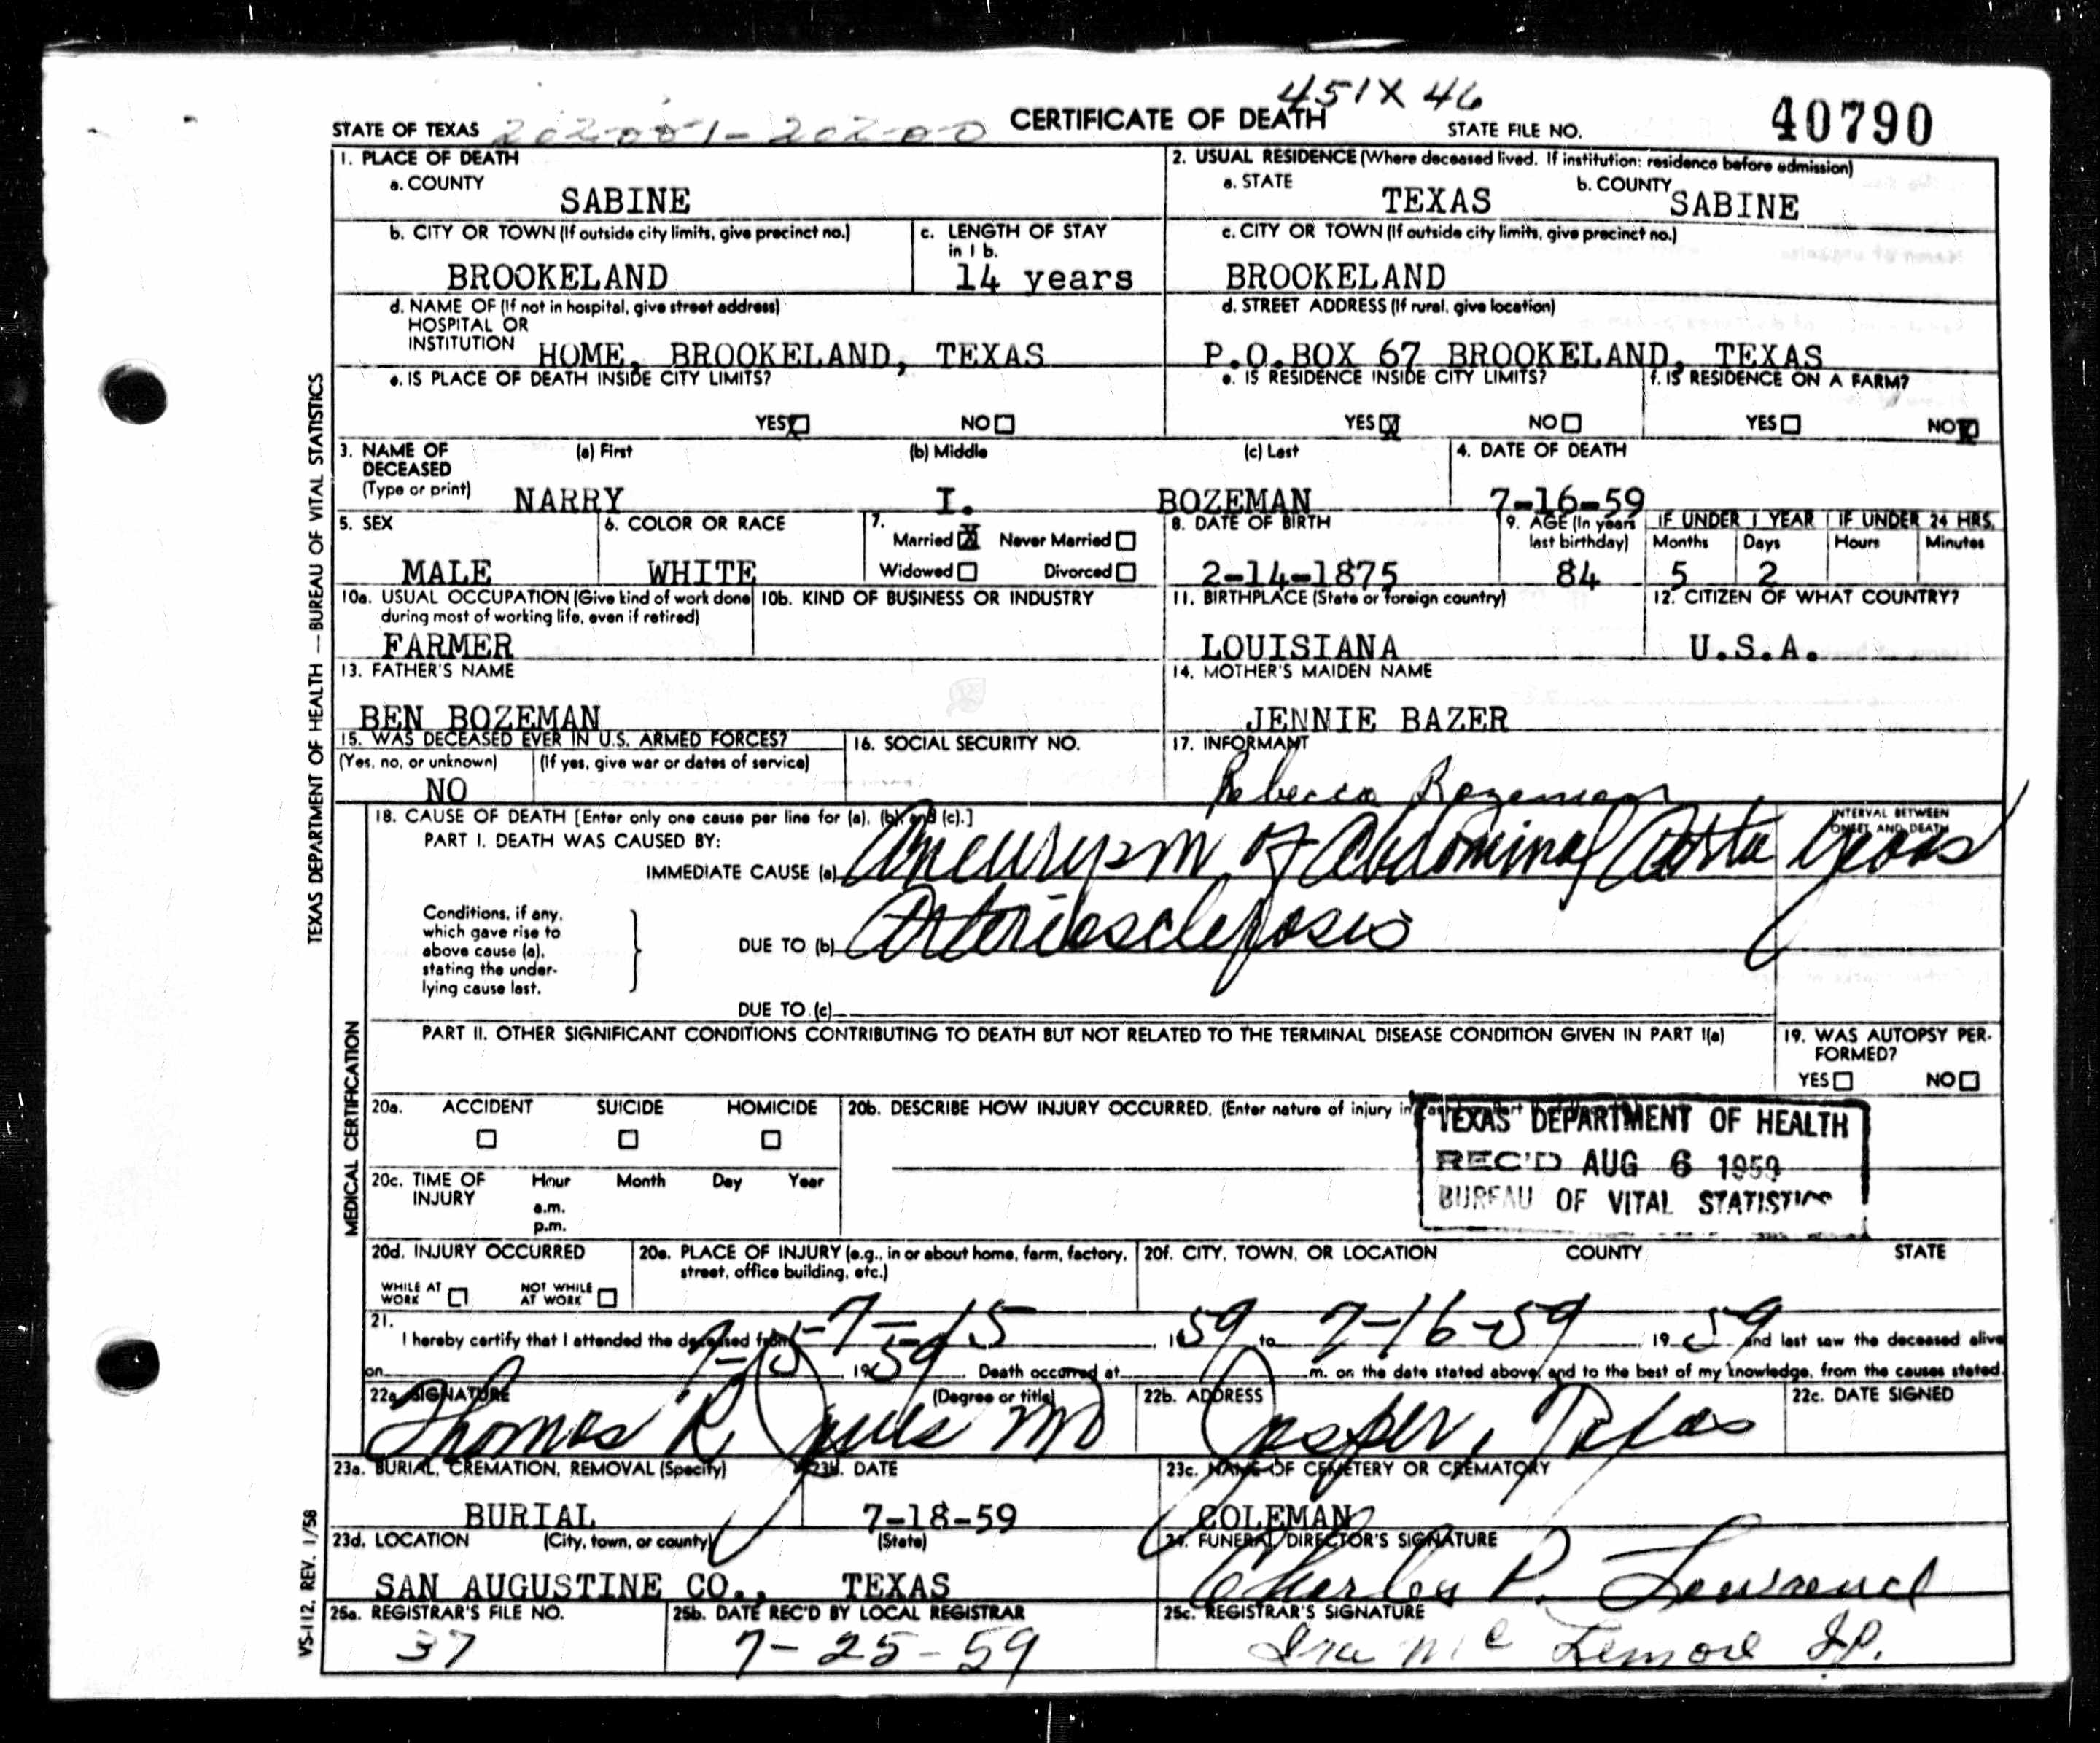 451X 46
STATE OF TEXAS CERTIFICATE OF DEATH STATE FILE NO. 40790
1. PLACE OF DEATH
a. COUNTY
SABINE
2. USUAL RESIDENCE (Where deceased lived. If institution: residence before admission)
a. STATE b. COUNTY
TEXAS SABINE
b. CITY OR TOWN (If outside city limits, give precinct no.)
BROOKELAND
c. LENGTH OF STAY
in 1 b.
14 years
c. CITY OR TOWN (If outside city limits, give precinct no.)
BROOKELAND
d. NAME OF (If not in hospital, give street address)
HOSPITAL OR
INSTITUTION HOME, BROOKELAND, TEXAS
d. STREET ADDRESS (If rural, give location)
P.O.BOX 67 BROOKELAND, TEXAS
e. IS PLACE OF DEATH INSIDE CITY LIMITS?
YES X NO
e. IS RESIDENCE INSIDE CITY LIMITS?
YES X NO
f. IS RESIDENCE ON A FARM?
YES NO X
3. NAME OF
DECEASED
(Type or print)
(a) First (b) Middle (c) Last
NARRY I. BOZEMAN
4. DATE OF DEATH
7-16-59
5. SEX
MALE
6. COLOR OR RACE
WHITE
7.
Married X Never Married
Widowed Divorced
8. DATE OF BIRTH
2-14-1875
9. AGE (In years
last birthday)
84
IF UNDER 1 YEAR IF UNDER 24 HRS.
Months Days Hours Minutes
5 2
10a. USUAL OCCUPATION (Give kind of work done
during most of working life, even if retired)
FARMER
10b. KIND OF BUSINESS OR INDUSTRY
11. BIRTHPLACE (State or foreign country)
LOUISIANA
12. CITIZEN OF WHAT COUNTRY?
U.S.A.
13. FATHER'S NAME
BEN BOZEMAN
14. MOTHER'S MAIDEN NAME
JENNIE BAZER
15. WAS DECEASED EVER IN U.S. ARMED FORCES?
(Yes, no, or unknown) (If yes, give war or dates of service)
NO
16. SOCIAL SECURITY NO.
17. INFORMANT
Rebecca Bozeman
18. CAUSE OF DEATH [Enter only one cause per line for (a), (b) and (c).]
INTERVAL BETWEEN
ONSET AND DEATH
PART I. DEATH WAS CAUSED BY:
IMMEDIATE CAUSE (a) Aneurysm of Abdominal Aorta years
Conditions, if any,
which gave rise to
above cause (a),
stating the under-
lying cause last.
DUE TO (b) Arteriosclerosis
DUE TO (c)
PART II. OTHER SIGNIFICANT CONDITIONS CONTRIBUTING TO DEATH BUT NOT RELATED TO THE TERMINAL DISEASE CONDITION GIVEN IN PART I(a)
19. WAS AUTOPSY PER-
FORMED?
YES NO
20a. ACCIDENT SUICIDE HOMICIDE
20b. DESCRIBE HOW INJURY OCCURRED. (Enter nature of injury in
TEXAS DEPARTMENT OF HEALTH
REC'D AUG 6 1959
BUREAU OF VITAL STATISTICS
20c. TIME OF
INJURY
Hour Month Day Year
a.m.
p.m.
20d. INJURY OCCURRED
WHILE AT
WORK
NOT WHILE
AT WORK
20e. PLACE OF INJURY (e.g., in or about home, farm, factory,
street, office building, etc.)
20f. CITY, TOWN, OR LOCATION COUNTY STATE
21.
I hereby certify that I attended the deceased from 7-15, 1959 to 7-16-59 19 59 and last saw the deceased alive
on 7-15, 1959. Death occurred at m. on the date stated above, and to the best of my knowledge, from the causes stated.
22a. SIGNATURE (Degree or title)
Thomas R. MD
22b. ADDRESS
Jasper, Texas
22c. DATE SIGNED
23a. BURIAL, CREMATION, REMOVAL (Specify)
BURIAL
23b. DATE
7-18-59
23c. NAME OF CEMETERY OR CREMATORY
COLEMAN
23d. LOCATION (City, town, or county) (State)
SAN AUGUSTINE CO., TEXAS
24. FUNERAL DIRECTOR'S SIGNATURE
Charles P. Lawrence
25a. REGISTRAR'S FILE NO.
37
25b. DATE REC'D BY LOCAL REGISTRAR
7-25-59
25c. REGISTRAR'S SIGNATURE
Ira McLemore J.P.
TEXAS DEPARTMENT OF HEALTH — BUREAU OF VITAL STATISTICS
MEDICAL CERTIFICATION
VS-112, REV. 1/58